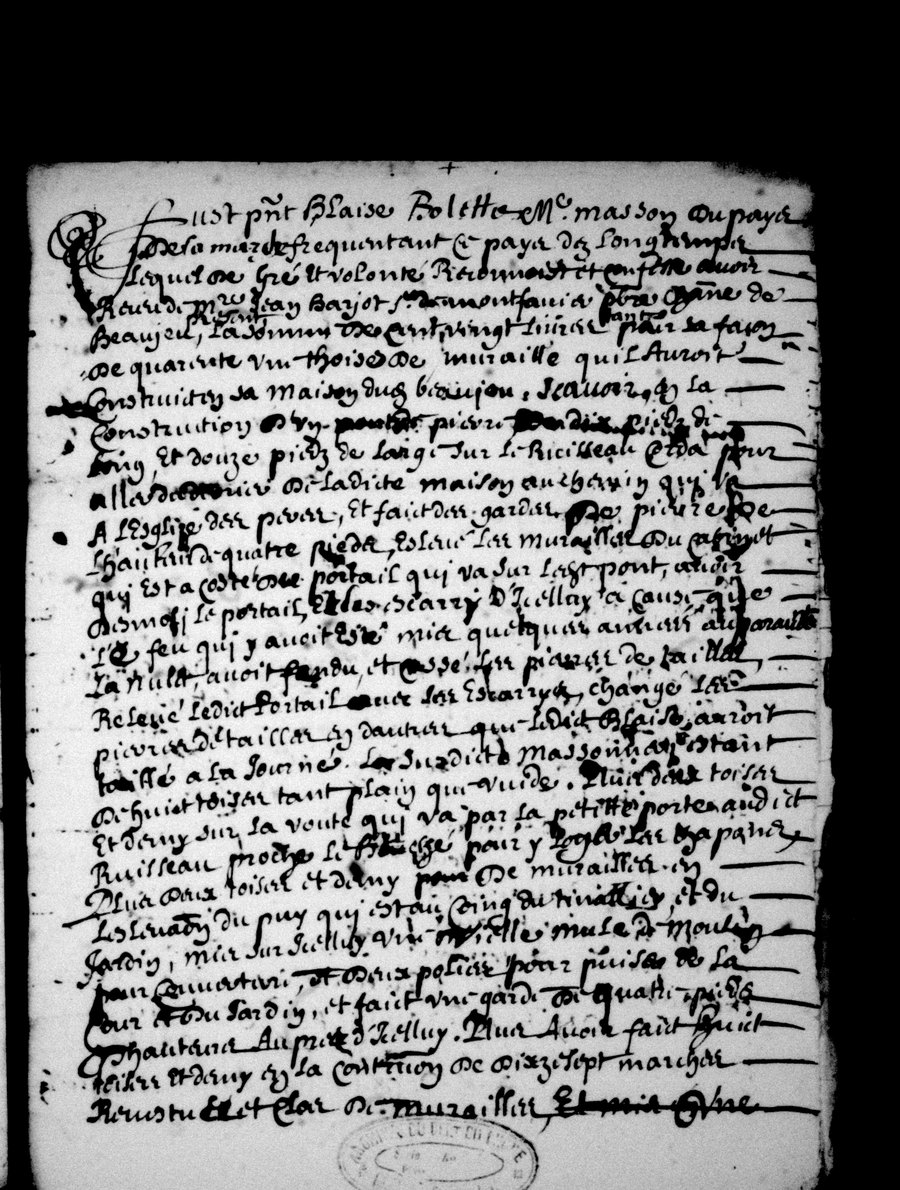 Fust pñt Blaise Bolette Me. masson du pays
de la marche frequentant ce pays dez longtemps
Lequel de gré et volonté Recounoist et confesse avoir
Receu de Mre Jean Barjot sr. de montfavier pbre chãne de
Beaujeu, present La somme de cent vingt livres pour sa façon
de quarente une thoises de muraille qu il Auroit
Construict en sa maison dud beaujeu, scavoir, en la
Construction d un pierre piedz de
long, Et douze piedz de large sur le Ruisseau pour
aller de ladicte maison au chemin qui va
A l Esglise des peres, Et faict des gardes de pierre de
lhauteur de quatre piedz, Eslevé les murailles du cabinet
qui Est a costé du portail qui va sur lest pont, avoir
desmoli le portail, Et les escarry d Icelluy a cause que
le feu qui y avoit Esté mis quelques années auparavant
La nuict, avoit fendu, et cassé les pierres de taille,
Relevé ledict Portail avec ses Escarryz, changé les
pierres de tailles en dautres que ledict Blaise auroit
taillé a la Journé. La susdicte Massonnerie estant
de huict toises tant plain que vuide. Plus deux toises
Et demy sur la voute qui va par la petitte porte audict
Ruisseau proche le pour y loger les chapons,
Plus deux toises et demy de murailles en
Leslevaõn du puy qui est au coing du et du
Jardin, mis sur Icelluy une meulle de Moulin
pour Couverture, et deux polies pour puiser de la
Cour et du Jardin, et faict une garde de quatre pieds
d hauteur Aupres d Icelluy. Plus Avoir faict huict
toises Et demy en la Contruõn de dixzesept marches
Revestues et Clas de murailles, Et mis